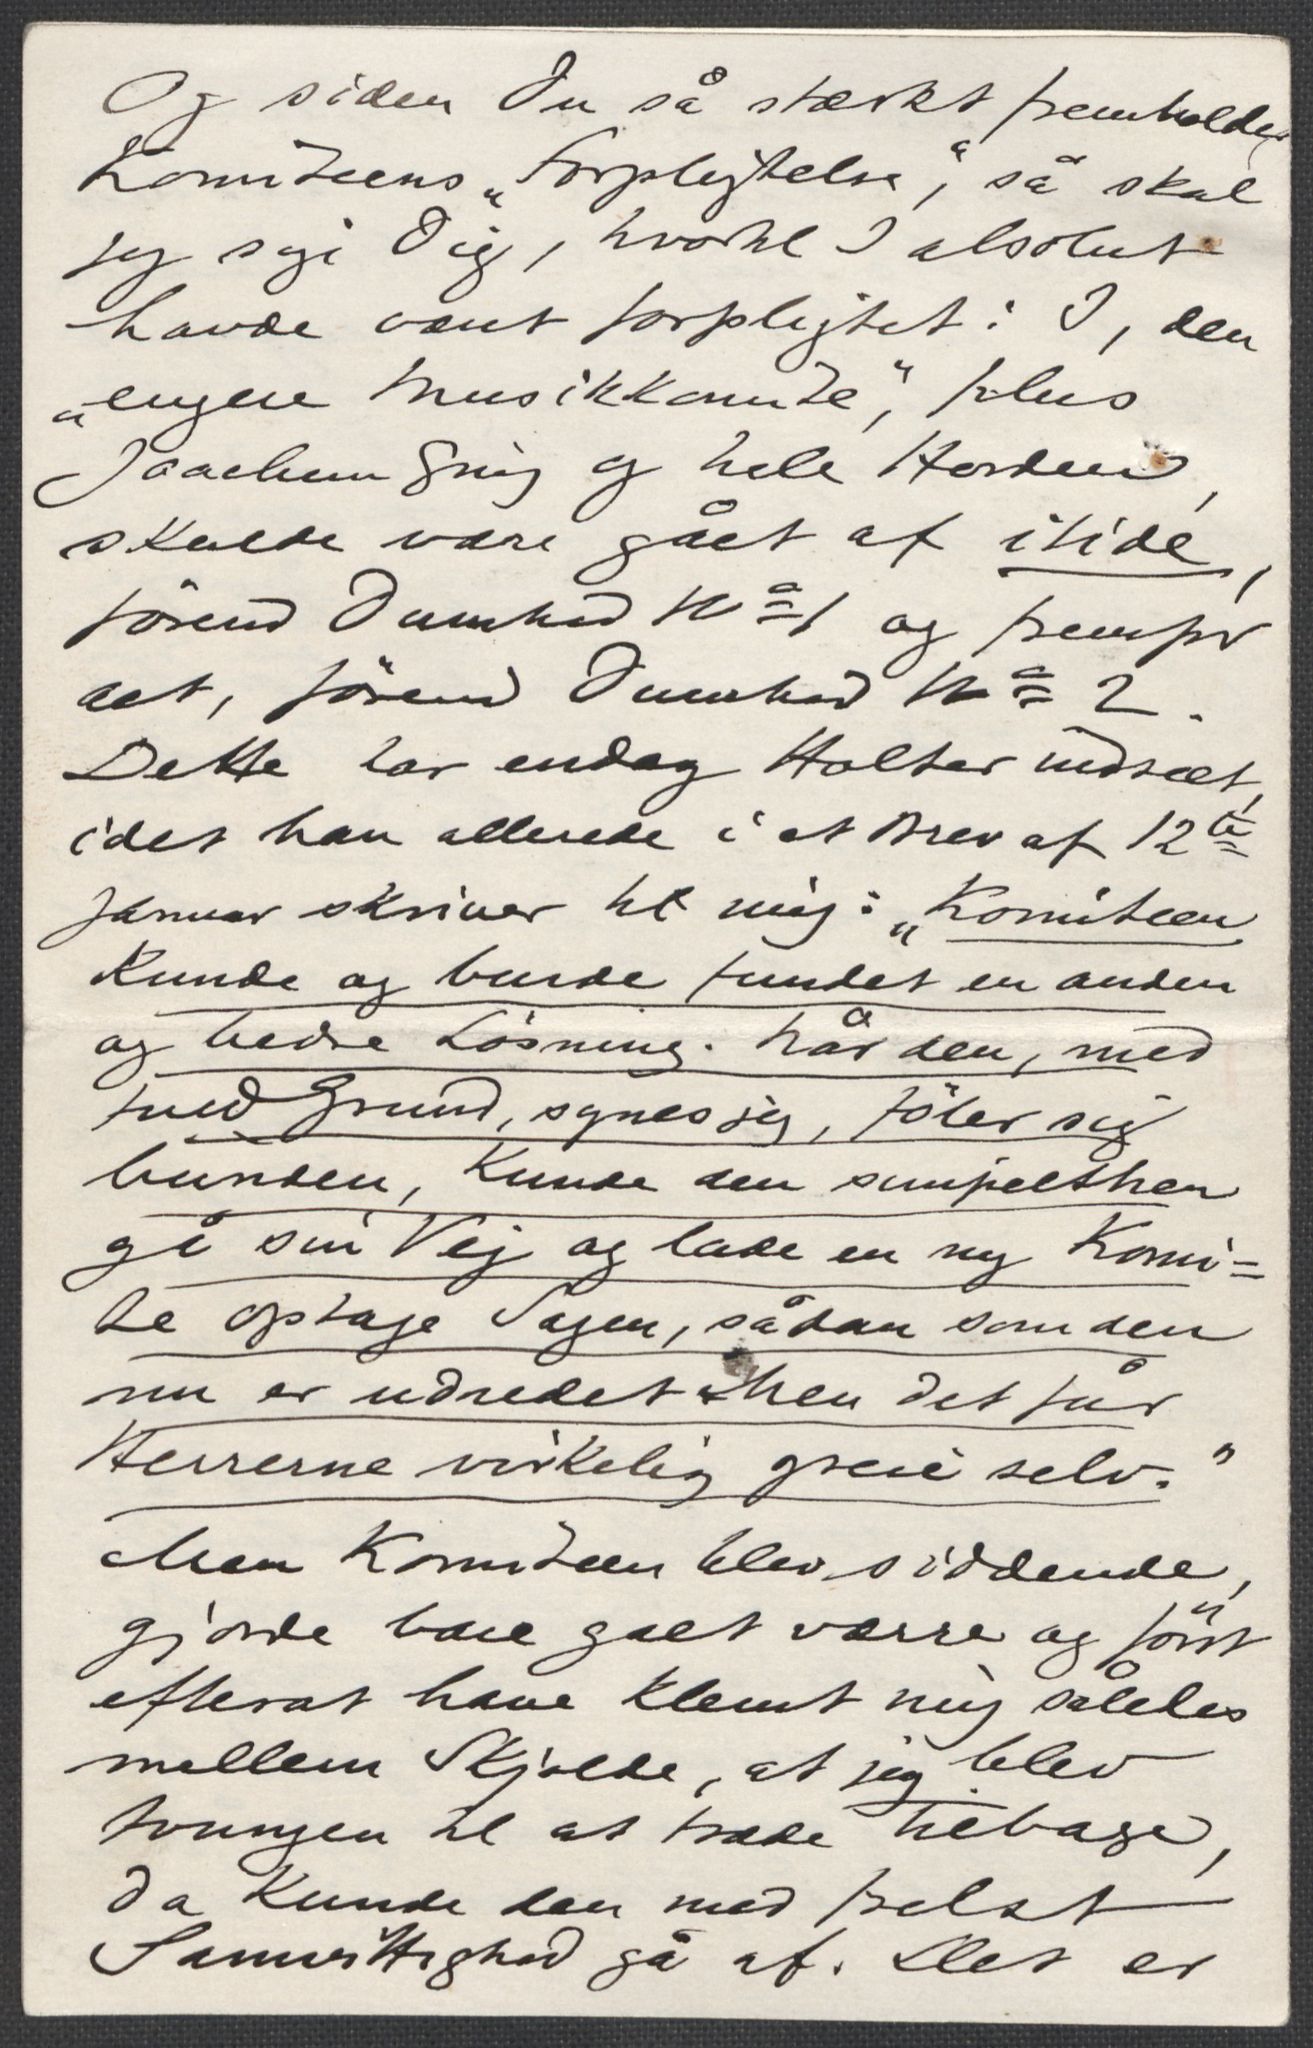 Og siden Du så stærkt fremholder
Komiteens „Forpligtelse“, så skal
jeg sige Dig, hvortil I absolut
havde været forpligtet: I, den
„engere Musikkomite“, plus
Joachim Grieg og hele Horden,
skulde være gået af itide,
førend Dumhed No 1 og fremfor
alt, førend Dumhed No 2.
Dette har endog Holter indseet,
idet han allerede i et Brev af 12te
Januar skriver til mig: „Komiteen
kunde og burde fundet en anden
og bedre Løsning. Når den, med
fuld Grund, synes jeg, føler sig
bunden, kunde den simpelthen
gå sin Vej og lade en ny Komi=
te optage Sagen, sådan som den
nu er udredet. Men det får
Herrerne virkelig greie selv.“
Men Komiteen blev siddende,
gjorde bare galt værre og først
efterat have klemt mig således
mellem Skjolde, at jeg blev
tvungen til at træde tilbage,
da kunde den med frelst
Samvittighed gå af. Det er